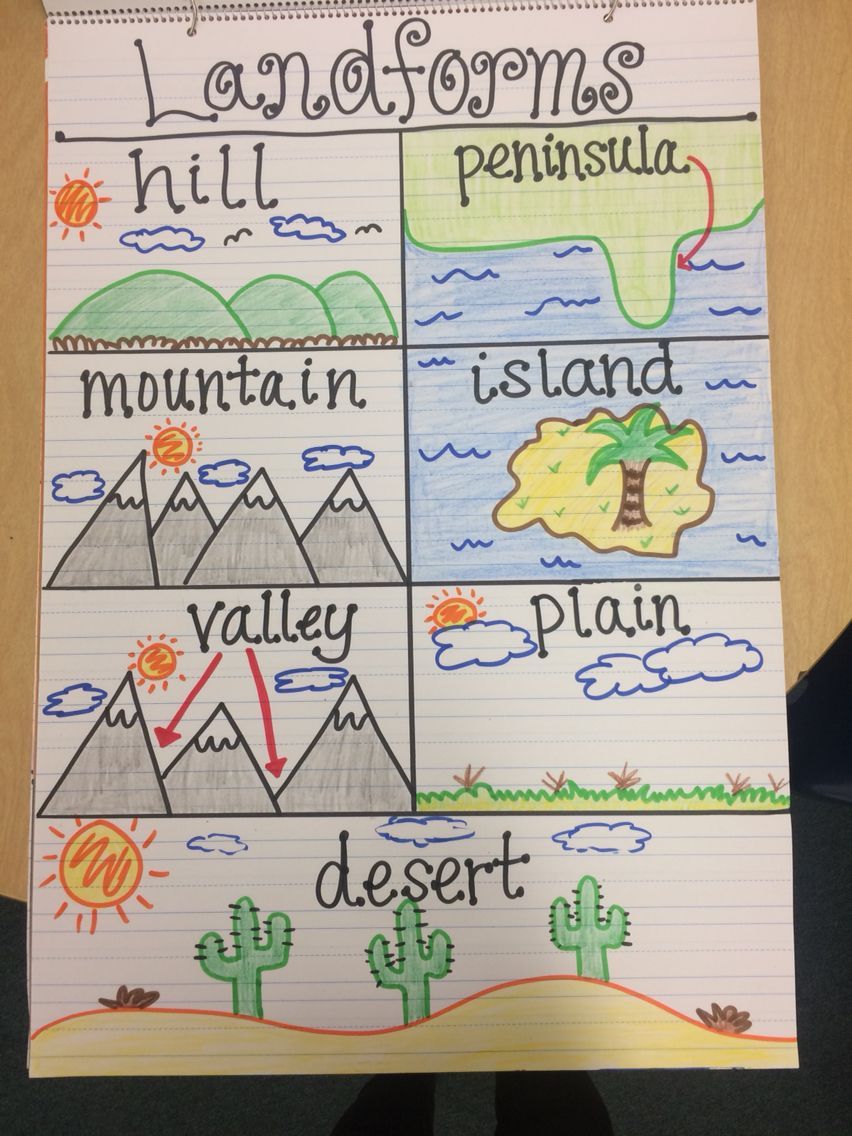 Landforms
hill
peninsula
mountain
island
valley
plain
desert